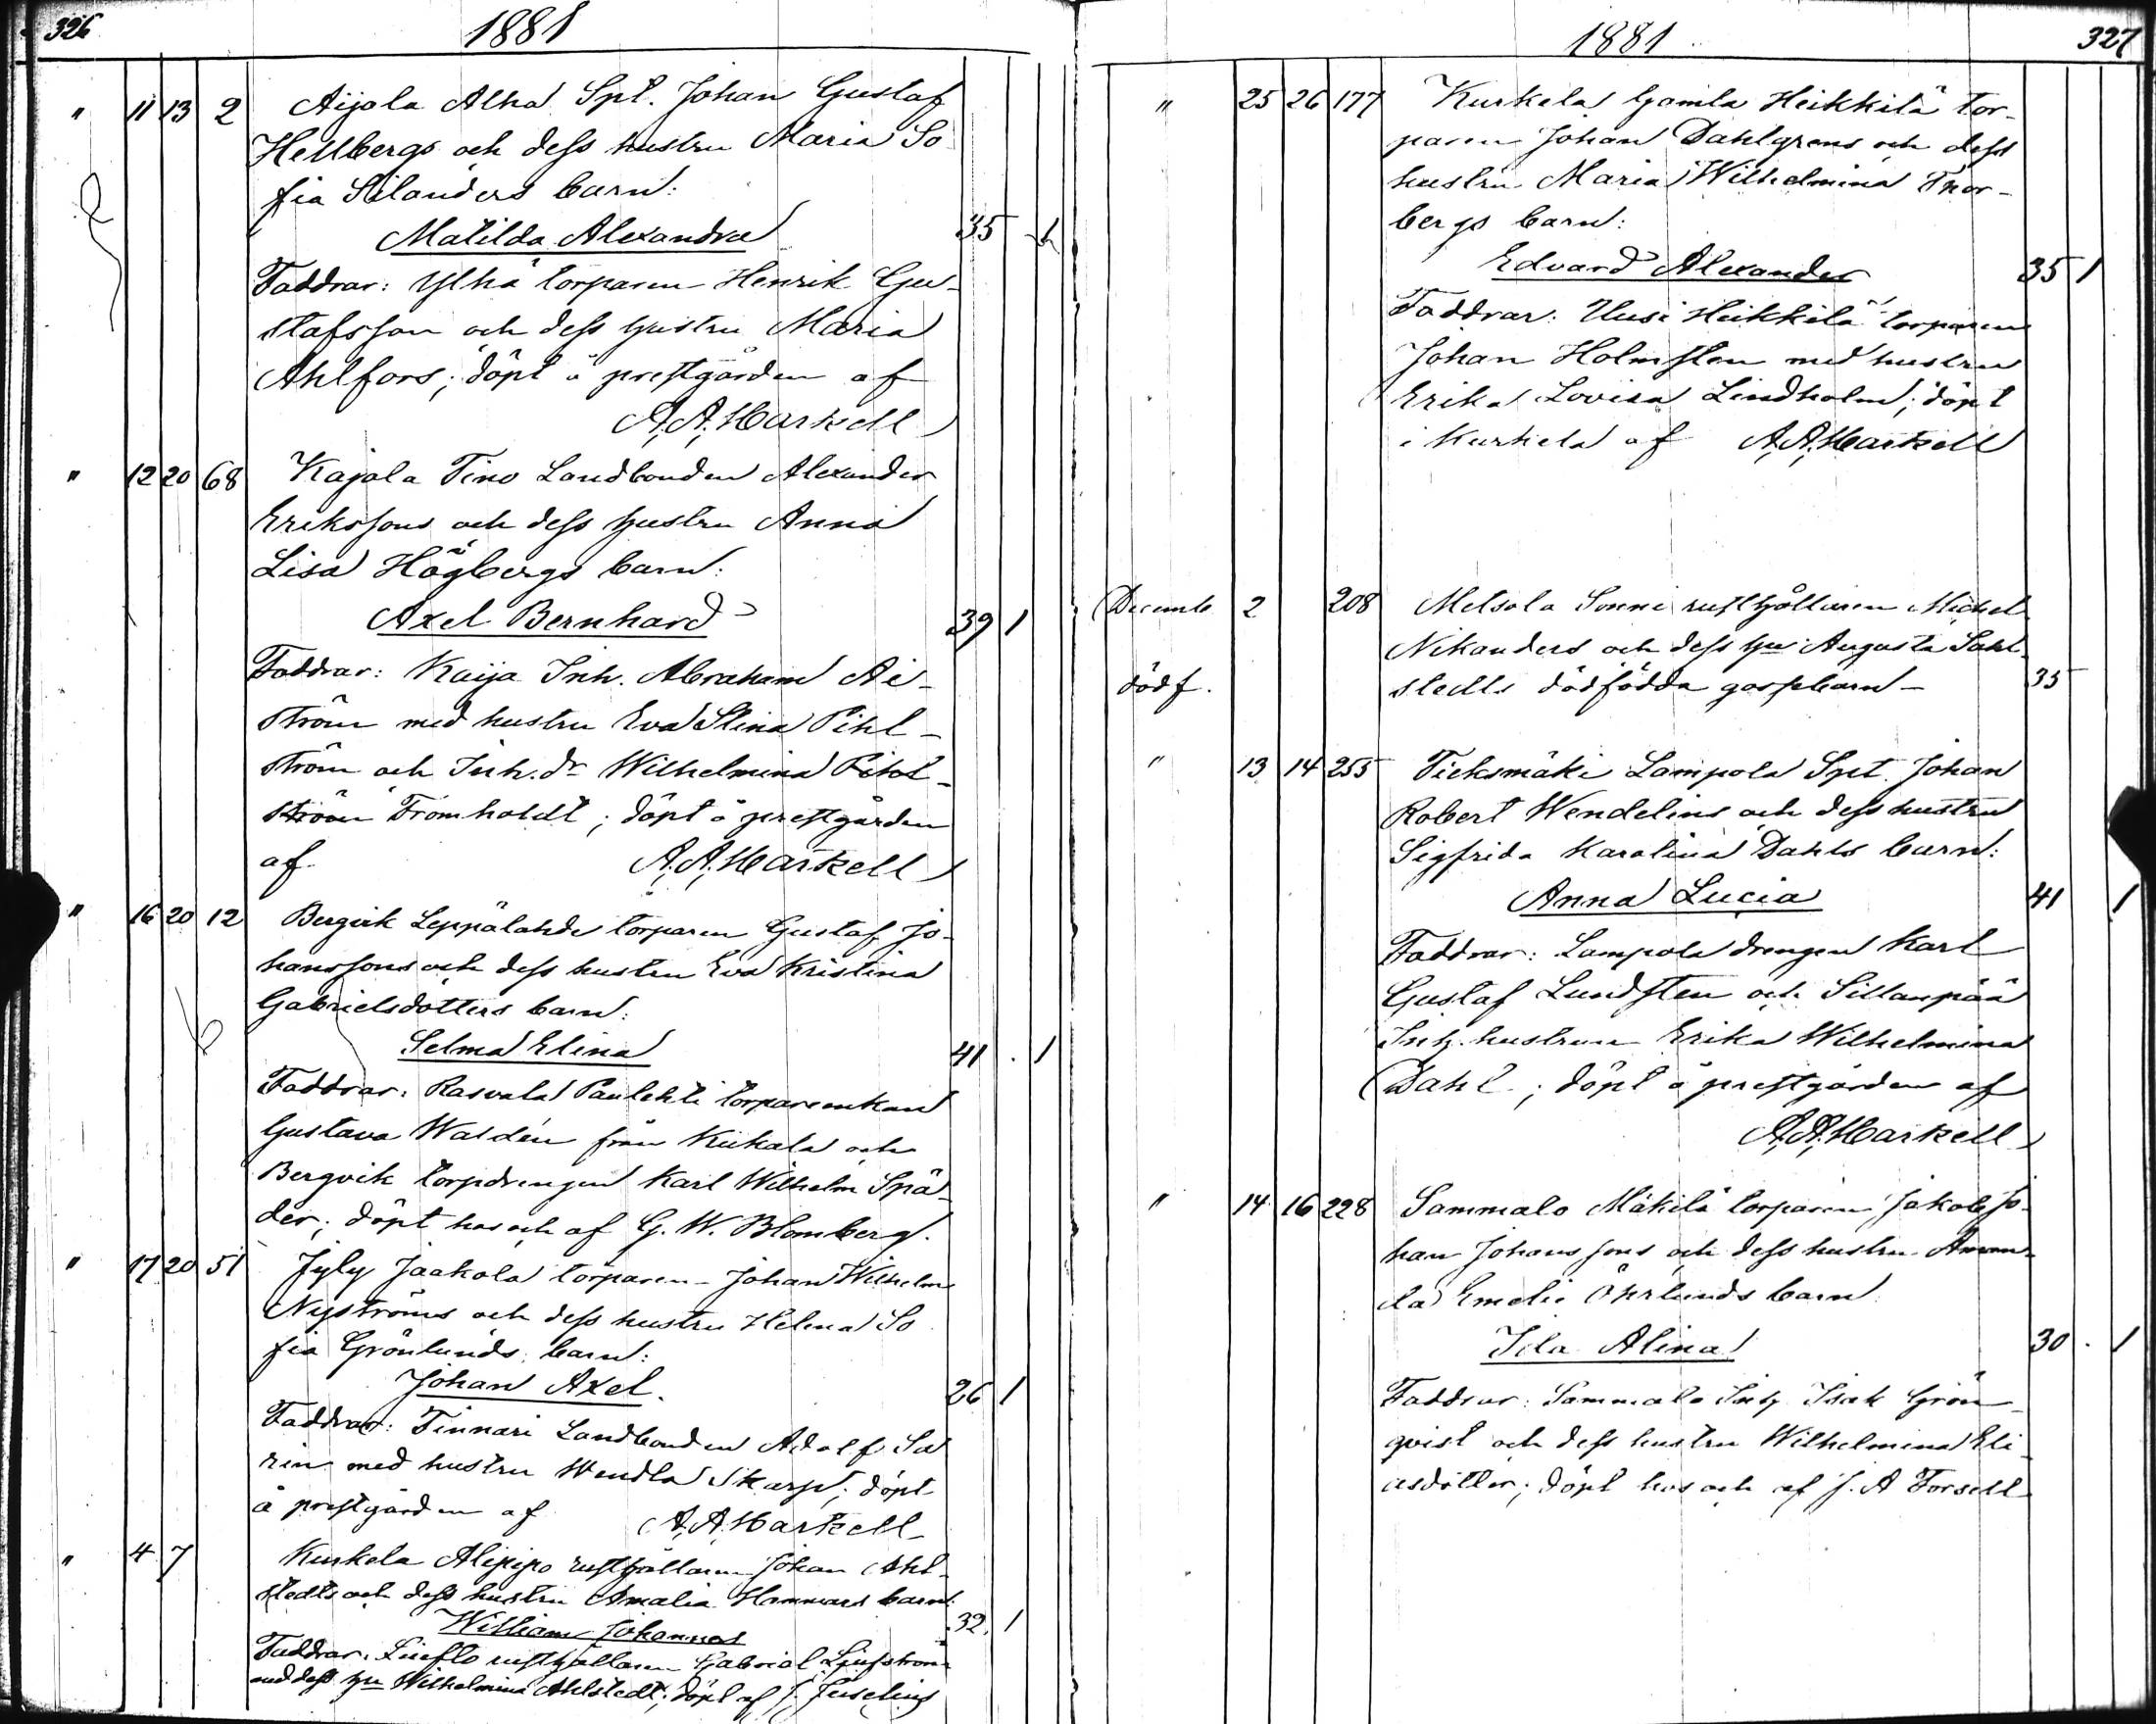 326
1881
" 11 13 2 Aijola Alha Spt. Johan Gustaf
Hellbergs och dess hustru Maria So
fia Silanders barn:
Matilda Alexandra 35 1
Faddrar: Ylhä torparen Henrik Gu-
stafsson och dess hustru Maria
Ahlfors; döpt å prestgården af
A. A. Harkell
" 12 20 68 Kajala Tino Landbonden Alexander
Erikssons och dess hustru Anna
Lisa Högbergs barn:
Axel Bernhard 39 1
Faddrar: Kaija Inh. Abraham
ström med hustru Eva Stina Pihl-
ström och Inh. dr Wilhelmina
ström Fromholdt; döpt å prestgården
af A. A. Harkell
" 16 20 12 Bergvik Leppälahde torparen Gustaf Jo-
hanssons och dess hustru Eva Kristina
Gabrielsdotters barn:
Selma Elina 41 . 1
Faddrar: Rasvala Paulehti
Gustava Waldén från Kiikala och
Bergvik torpdrengen Karl Wilhelm Spä-
der; döpt hos och af G. W. Blomberg.
" 17 20 51 Jyly Jaakola torparen Johan Wilhelm
Nyströms och dess hustru Helena So
fia Grönlunds barn:
Johan Axel. 26 1
Faddrar: Tinnari Landbonden Adolf Sa
rin med hustru Wendla Skarp; döpt
å prestgården af A. A. Harkell
" 4 7 Kurkela Alipipo rusthållaren Johan Ahl-
stedts och dess hustru Amalia Hammars barn:
William Johannes 32. 1
Faddrar: rusthållaren Gabriel
med dess hu Wilhelmina Ahlstedt; döpt af J. Juselius
1881
327
" 25 26 177 Kurkela Gamla Heikkilä tor-
paren Johan Dahlgrens och dess
hustru Maria Wilhelmina Thor-
bergs barn:
Edvard Alexander 35 1
Faddrar: Uusi Heikkilä torparen
Johan Holmsten med hustru
Erika Lovisa Lindholm; döpt
i Kurkela af A. A. Harkell
Decemb. 2 208 Metsola Sonni rusthållaren Michel
Nikanders och dess hu Augusta Sahl-
dödf. stedts dödfödda gossebarn - 35
" 13 14 255 Tieksmäki Lampola Spt. Johan
Robert Wendelins och dess hustru
Sigfrida Karolina Dahls barn:
Anna Lucia 41 1
Faddrar: Lampola drengen Karl
Gustaf Lundsten och Sillanpää
Inh. hustrun Erika Wilhelmina
Dahl; döpt å prestgården af
A. A. Harkell
" 14 16 228 Sammalo Mäkilä torparen Jakob Jo-
han Johanssons och dess hustru Aman-
da Emelie Öhrlunds barn
Ida Alina 30 . 1
Faddrar: Sammalo Inh. Isak Grön-
qvist och dess hustru Wilhelmina Eli-
asdotter; döpt hos och af J. A Forsell